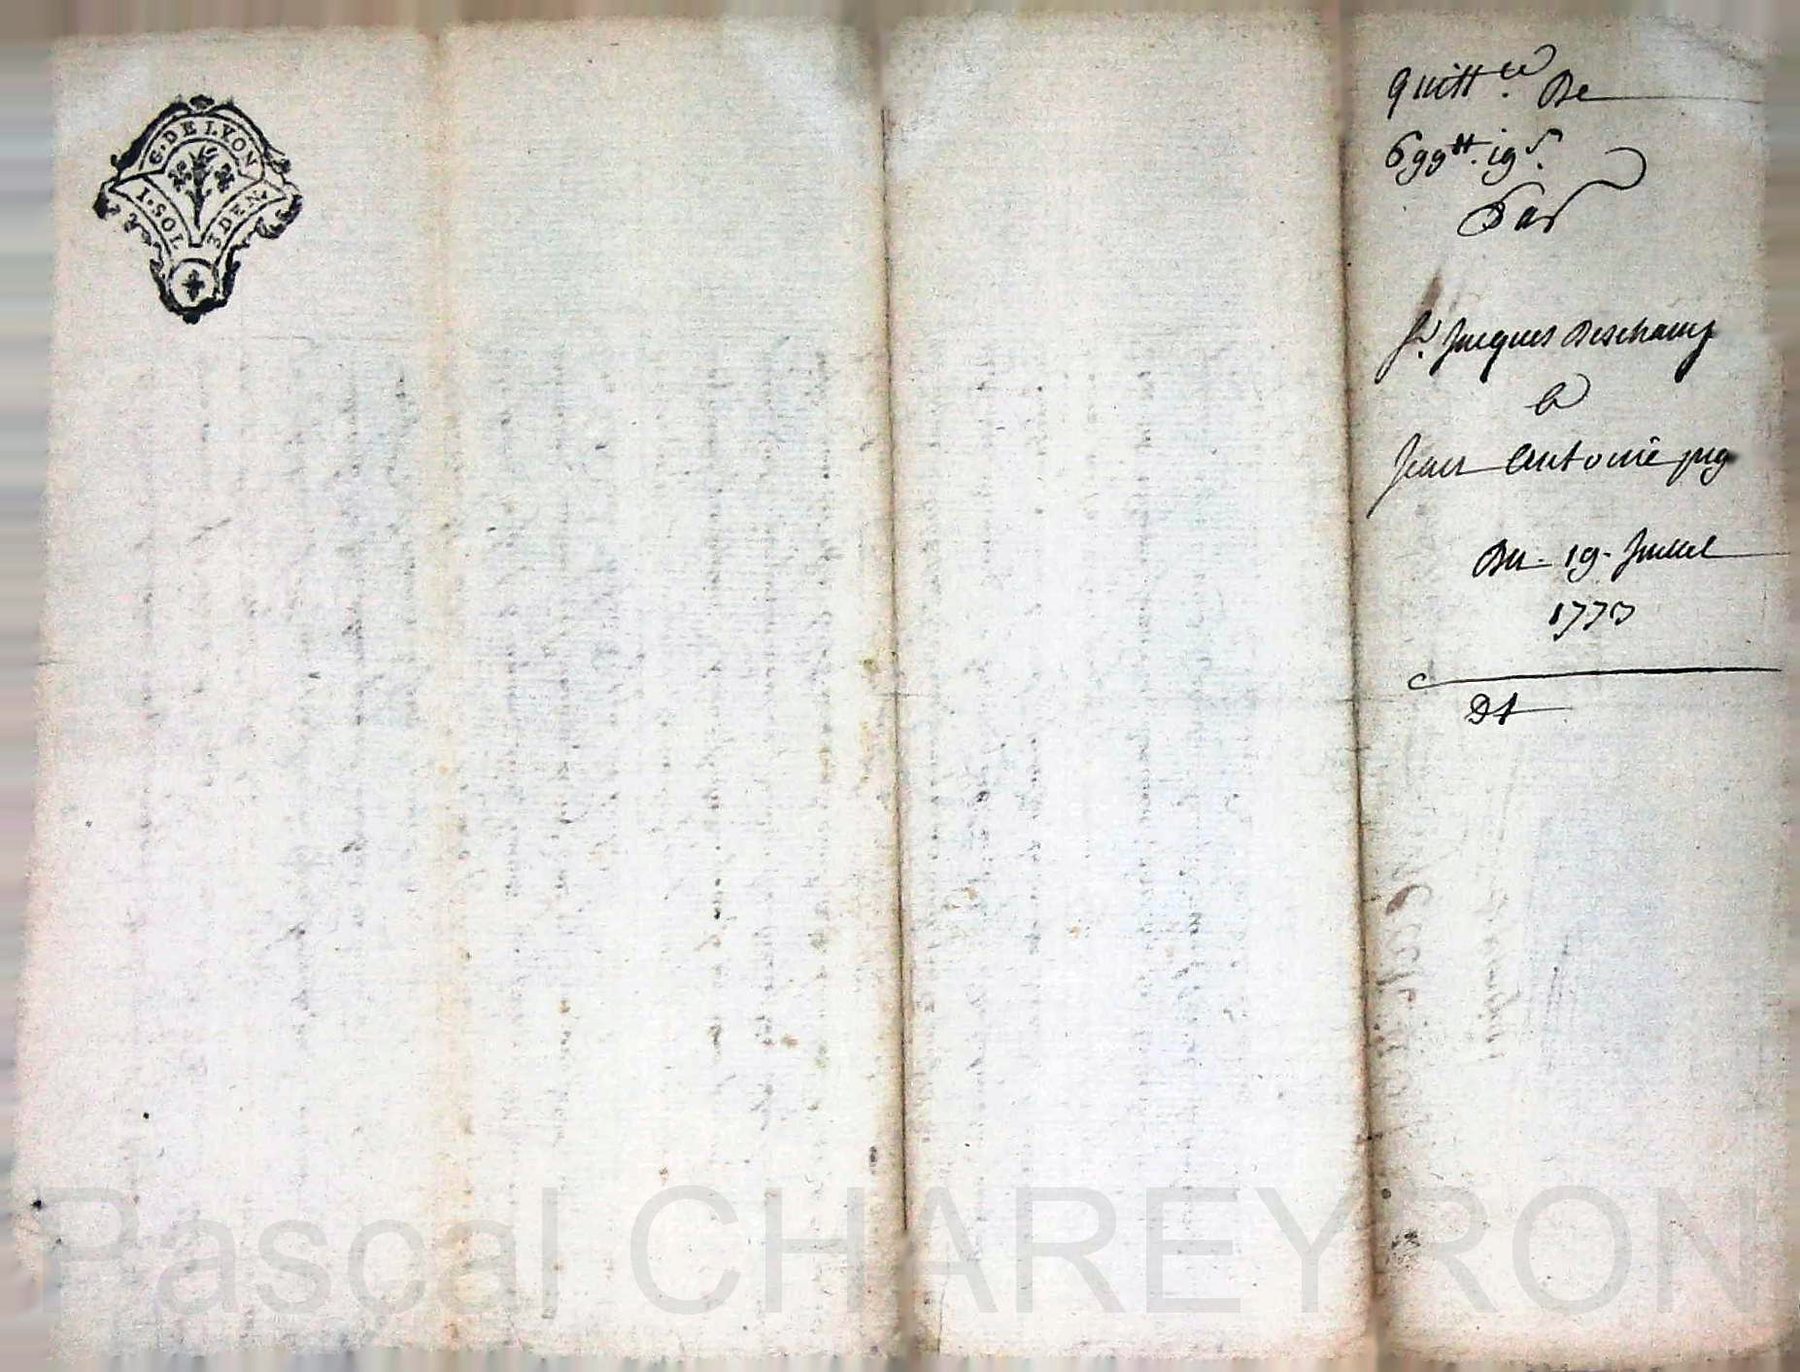 G. DE LYON
1. SOL 3 DEN.
quitt.ce De
699 tt. 19 s.
Par
Sr. Jacques Deschamp
a
Jean Antoine pug
Du 19 Juillet
1773
Dt
Pascal CHAREYRON